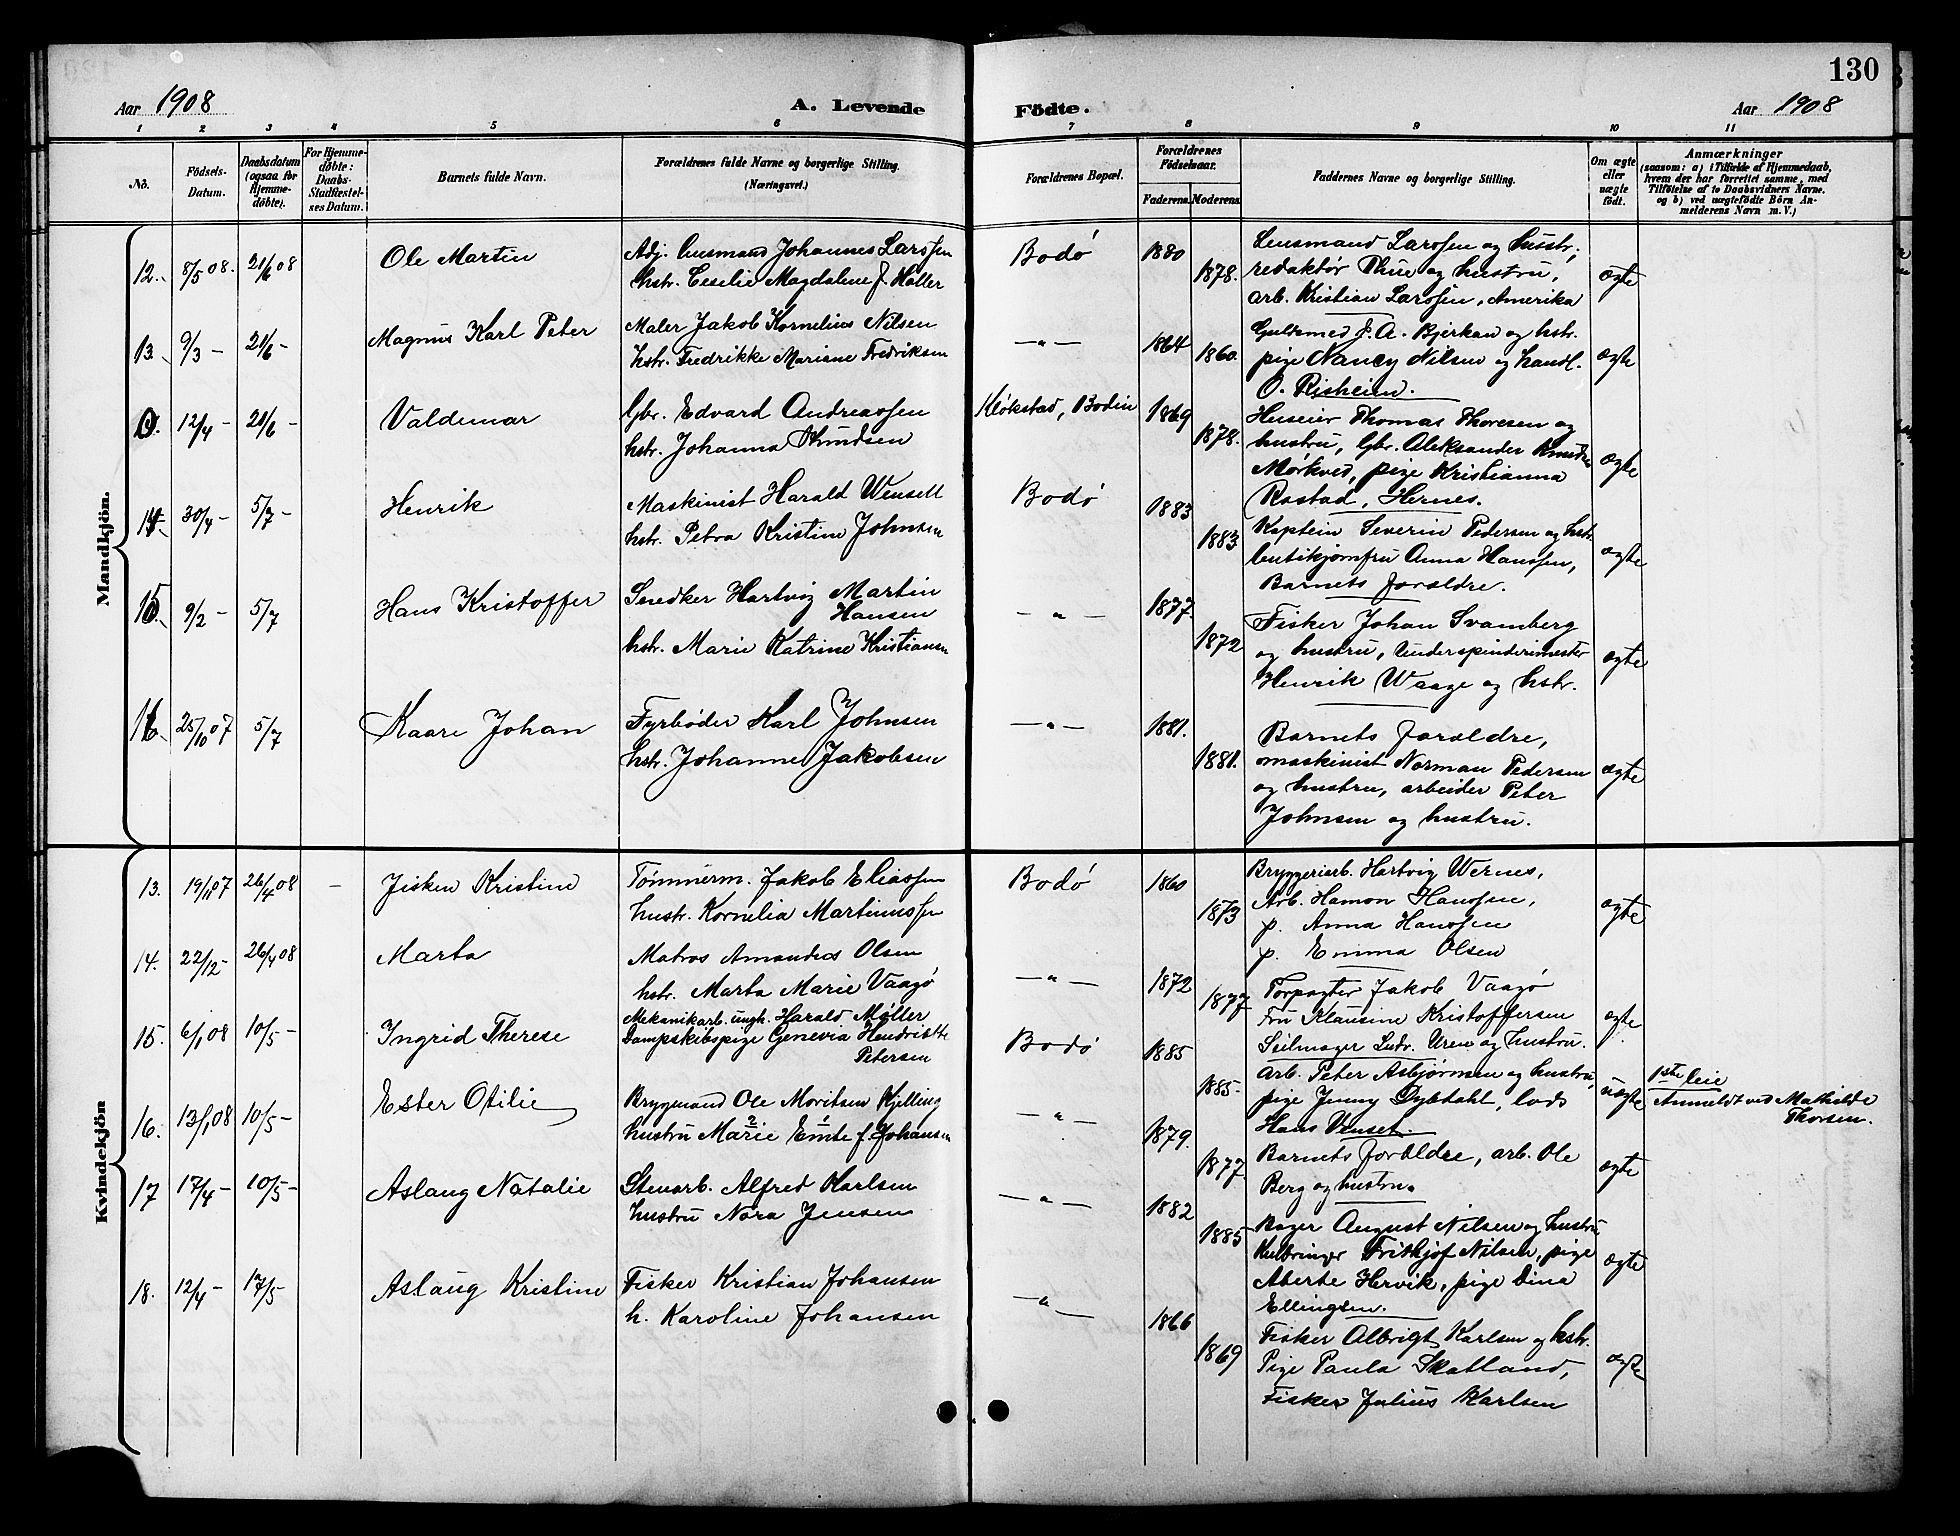 130
Aar 1908 A. Levende Födte. Aar 1908
1 2 3 4 5 6 7 8 9 10 11
No.
Födsels-Datum.
Daabsdatum (ogsaa for Hjemme-döbte).
For Hjemme-döbte: Daabs-Stadfæstel-ses Datum.
Barnets fulde Navn.
Forældrenes fulde Navne og borgerlige Stilling.
(Næringsvei.)
Forældrenes Bopæl.
Forældrenes Födselsaar.
Faderens. Moderens.
Faddernes Navne og borgerlige Stilling.
Om ægte eller uægte födt.
Anmærkninger
(saasom: a) i Tilfælde af Hjemmedaab,
hvem der har forrettet samme, med
Tilföielse af to Daabsvidners Navne.
og b) ved uægtefödte Börn An-
melderens Navn m. V.)
Mandkjön.
12. 8/5 08. 21/6 08 Ole Martin
Adj. lensmand Johannes Larssen
hstr. Cesilie Magdalene f. Holter
Bodø 1880 1878.
Lensmand Larssen og hustr.,
redaktør Thue og hustru,
arb. Kristian Larssen, Amerika
ægte
13. 9/3 - 21/6 - Magnus Karl Peter
Maler Jakob Kornelius Nilsen
hstr. Fredrikke Mariane Fredriksen
—"— 1864 1860.
Guldsmed J. A. Bjerkan og hstr.
pige Nancy Nilsen og handl.
O. Risheim.
ægte
12/4 - 21/6 - Valdemar
Gbr. Edvard Andreassen
hstr. Johanna Knudsen
Kløkstad, Bodin 1869 1878.
Huseier Thomas Thoresen og
hustru, Gbr. Aleksander Knudsen
Mørkved, pige Kristianna
Rostad, Hernes.
ægte
14. 30/4 - 5/7 - Henrik
Maskinist Harald Wensell
hstr. Petra Kristine Johnsen
Bodø 1883 1883
Kaptein Severin Pedersen og hstr.
butikjomfru Anna Hanssen,
Barnets forældre.
ægte
15. 9/2 - 5/7 Hans Kristoffer
Snedker Hartvig Martin
Hansen
hstr. Marie Katrine Kristiansen
—"— 1877. 1872
Fisker Johan Svamberg
og hustru, Underspinderimester
Henrik Waage og hstr.
ægte
16. 25/10 07 5/7 Kaare Johan
Fyrbøder Karl Johnsen
hstr. Johanne Jakobsen
—"— 1881. 1881.
Barnets forældre,
maskinist Norman Pedersen
og hustru, arbeider Peter
Johnsen og hustru.
ægte
Kvindekjön
13. 19/11 07 26/4 08 - Jisken Kristine
Tømmerm. Jakob Eliassen
hustr. Kornelia Martinussen
Bodø 1860 1873
Bryggeriarb. Hartvig Wernes,
Arb. Hamon Hanssen,
p. Anna Hanssen
p. Emma Olsen
ægte
14. 22/12 - 26/4 08 Marta
Matros Amandus Olsen
hstr. Marta Marie Vaagø
—"— 1872 1877
Forpagter Jakob Vaagø
Fru Klausine Kristoffersen
Seilmager Ludv. Uren og hustru.
ægte
15. 6/1 08 10/5 - Ingrid Therese
Mekanikarb. ungk. Harald Møller
Dampskibspige Genevia Hendriette
Petersen
Bodø 1885 1885-
Arb. Peter Asbjørnsen og hustru
pige Jenny Dybdahl, lods
Hans Venset.
uægte
1ste leie
Anmeldt ved Mathilde
Thorsen.
16. 13/1 08 10/5 - Ester Otilie
Brygmand Ole Moritsen Kjelling
hustru Marie Emte f. Johansen
—"— 1879. 1877
Barnets forældre, arb. Ole
Berg og hustru.
ægte
17 17/4 - 10/5 - Aslaug Natalie
Stenarb. Alfred Karlsen
hustru Nora Jensen
—"— 1882 1885
Bager August Nilsen og hustru
Kulbringer Frithjof Nilsen, pige
Aberte Hervik, pige Dina
Ellingsen.
ægte
18. 12/4 - 17/5 - Aslaug Kristine
Fisker Kristian Johansen
h. Karoline Johansen
—"— 1866 1869
Fisker Albrigt Karlsen og hstr.
Pige Paula Skatland,
Fisker Julius Karlsen
ægte